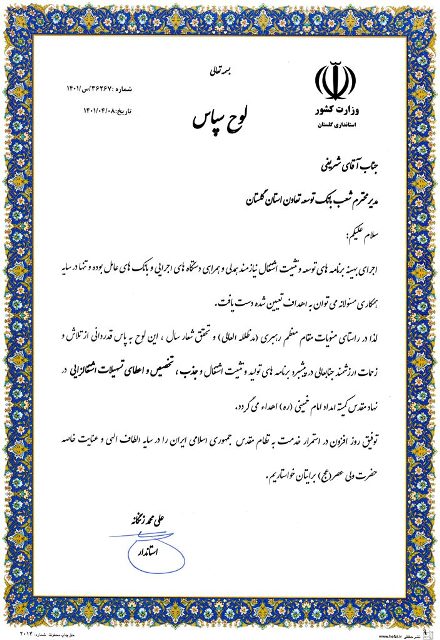 بسمه تعالی
شماره :۳۶۲۶۷/ص/۱۴۰۱
تاریخ:۱۴۰۱/۰۴/۰۸
وزارت کشور
استانداری گلستان
لوح سپاس
جناب آقای شریفی
مدیر محترم شعب بانک توسعه تعاون استان گلستان
سلام علیکم؛
اجرای بهینه برنامه های توسعه و تثبیت اشتغال نیازمند همدلی و همراهی دستگاه های اجرایی و بانک های عامل بوده و تنها در سایه
همکاری مسئولانه می توان به اهداف تعیین شده دست یافت.
لذا در راستای منویات مقام معظم رهبری (مدظله العالی) و تحقق شعار سال ، این لوح به پاس قدردانی از تلاش و
زحمات ارزشمند جنابعالی در پیشبرد برنامه های تولید و تثبیت اشتغال و جذب ، تخصیص و اعطای تسهیلات اشتغالزایی در
نهاد مقدس کمیته امداد امام خمینی (ره) اهداء می گردد.
توفیق روز افزون در استمرار خدمت به نظام مقدس جمهوری اسلامی ایران را در سایه الطاف الهی و عنایت خاصه
حضرت ولی عصر(عج) برایتان خواستاریم.
علی محمد زنگانه
استاندار
نشر حافظی www.hefzi.ir
حق چاپ محفوظ شماره: ۲۰۱۳